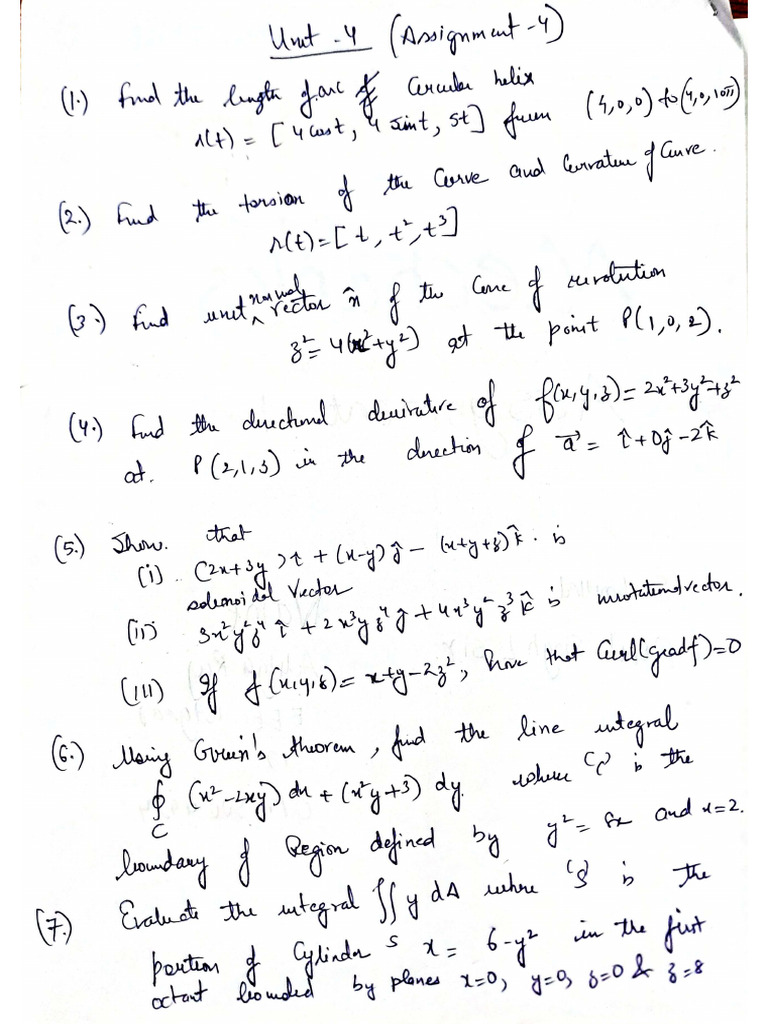 Unit - 4 (Assignment - 4)
(1.) find the length of arc of Circular helix
r(t) = [4 cost, 4 sint, 5t] from (4,0,0) to (4,0,10π)
(2.) find the torsion of the Curve and Curvature of Curve.
r(t) = [t, t², t³]
(3.) find unit normal vector n̂ of the Cone of revolution
z² = 4(x²+y²) at the point P(1,0,2).
(4.) find the directional derivative of f(x,y,z) = 2x²+3y²+z²
at. P(2,1,3) in the direction of a⃗ = î+0ĵ-2k̂
(5.) Show. that
(i) (2x+3y)î + (x-y)ĵ - (x+y+z)k̂. is
solenoidal Vector
(ii) 3x²y²z⁴ î + 2x³yz⁴ ĵ + 4x³y²z³ k̂ is irrotational vector.
(iii) If f(x,y,z) = x+y-2z², Prove that Curl(gradf)=0
(6.) Using Green's theorem, find the line integral
∮ (x²-2xy) dx + (x²y+3) dy. where 'C' is the
C
boundary of Region defined by y² = 8x and x=2.
(7.) Evaluate the integral ∬ y dA where 'S' is the
S
portion of Cylinder x = 6-y² in the first
octant bounded by planes x=0, y=0, z=0 & z=8